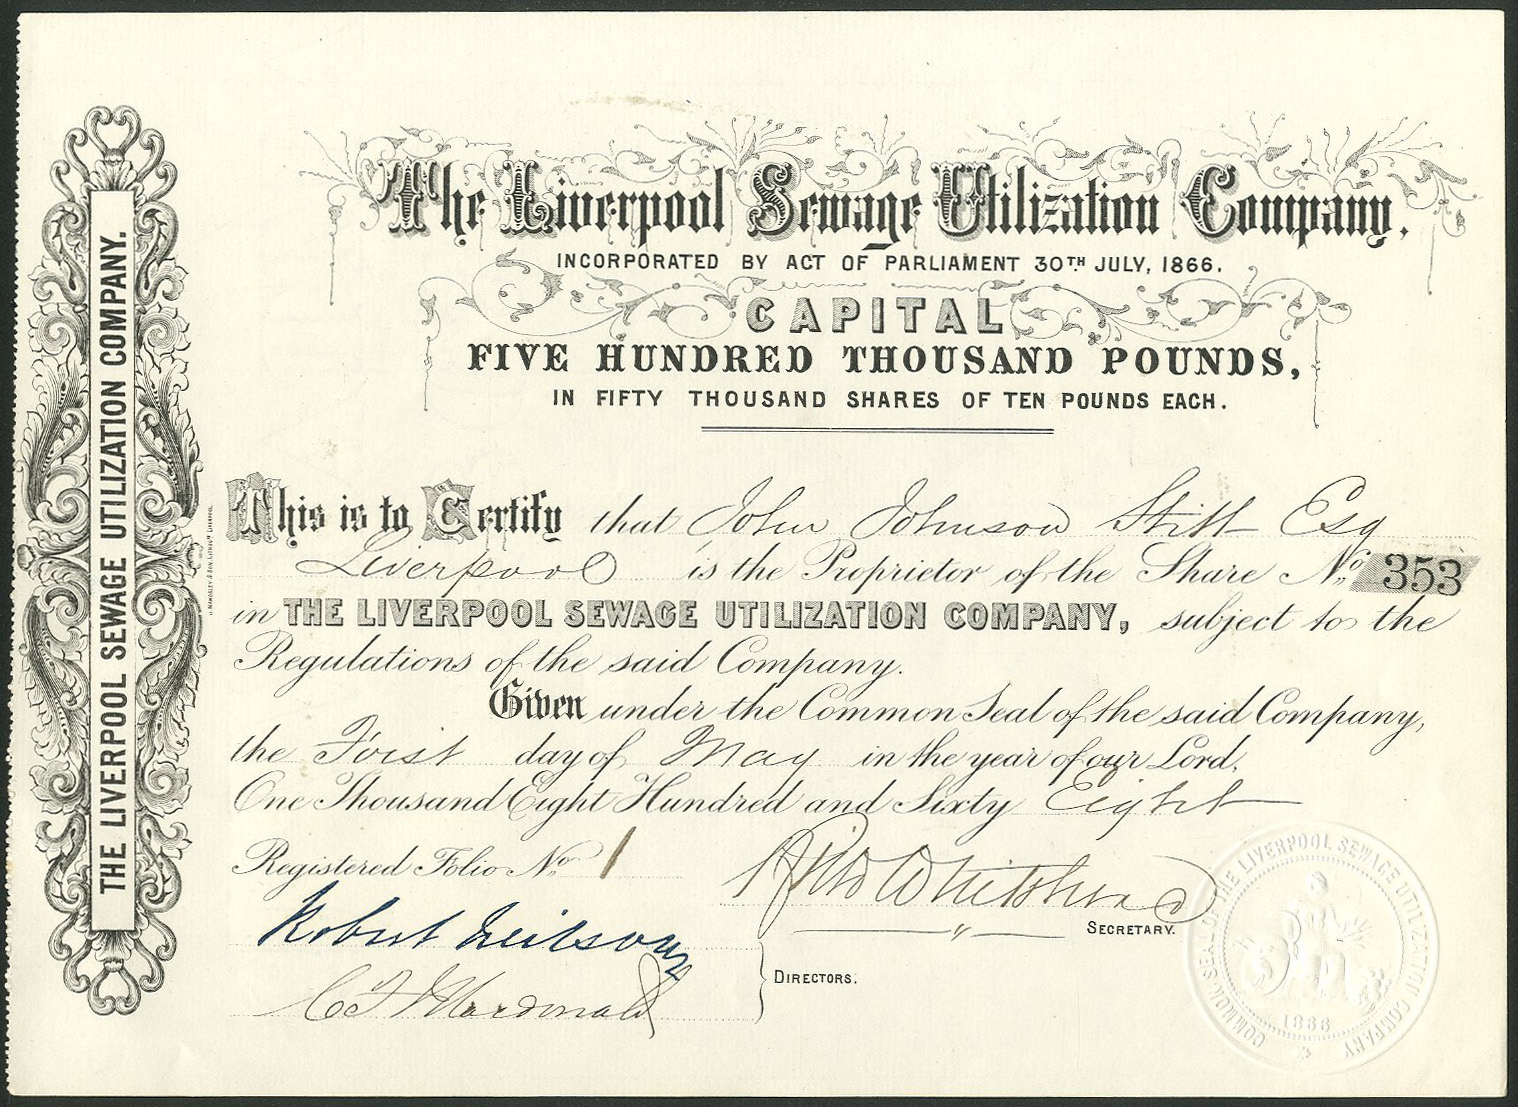 The Liverpool Sewage Utilization Company.
INCORPORATED BY ACT OF PARLIAMENT 30TH JULY, 1866.
CAPITAL
FIVE HUNDRED THOUSAND POUNDS,
IN FIFTY THOUSAND SHARES OF TEN POUNDS EACH.
This is to Certify that John Johnson Stitt Esq
Liverpool is the Proprietor of the Share No. 353
in THE LIVERPOOL SEWAGE UTILIZATION COMPANY, subject to the
Regulations of the said Company.
Given under the Common Seal of the said Company,
the First day of May in the year of our Lord,
One Thousand Eight Hundred and Sixty Eight
Registered Folio No. 1
SECRETARY.
Robert Neilson
C F Macdonald
DIRECTORS.
THE LIVERPOOL SEWAGE UTILIZATION COMPANY.
COMMON SEAL OF THE LIVERPOOL SEWAGE UTILIZATION COMPANY
1866